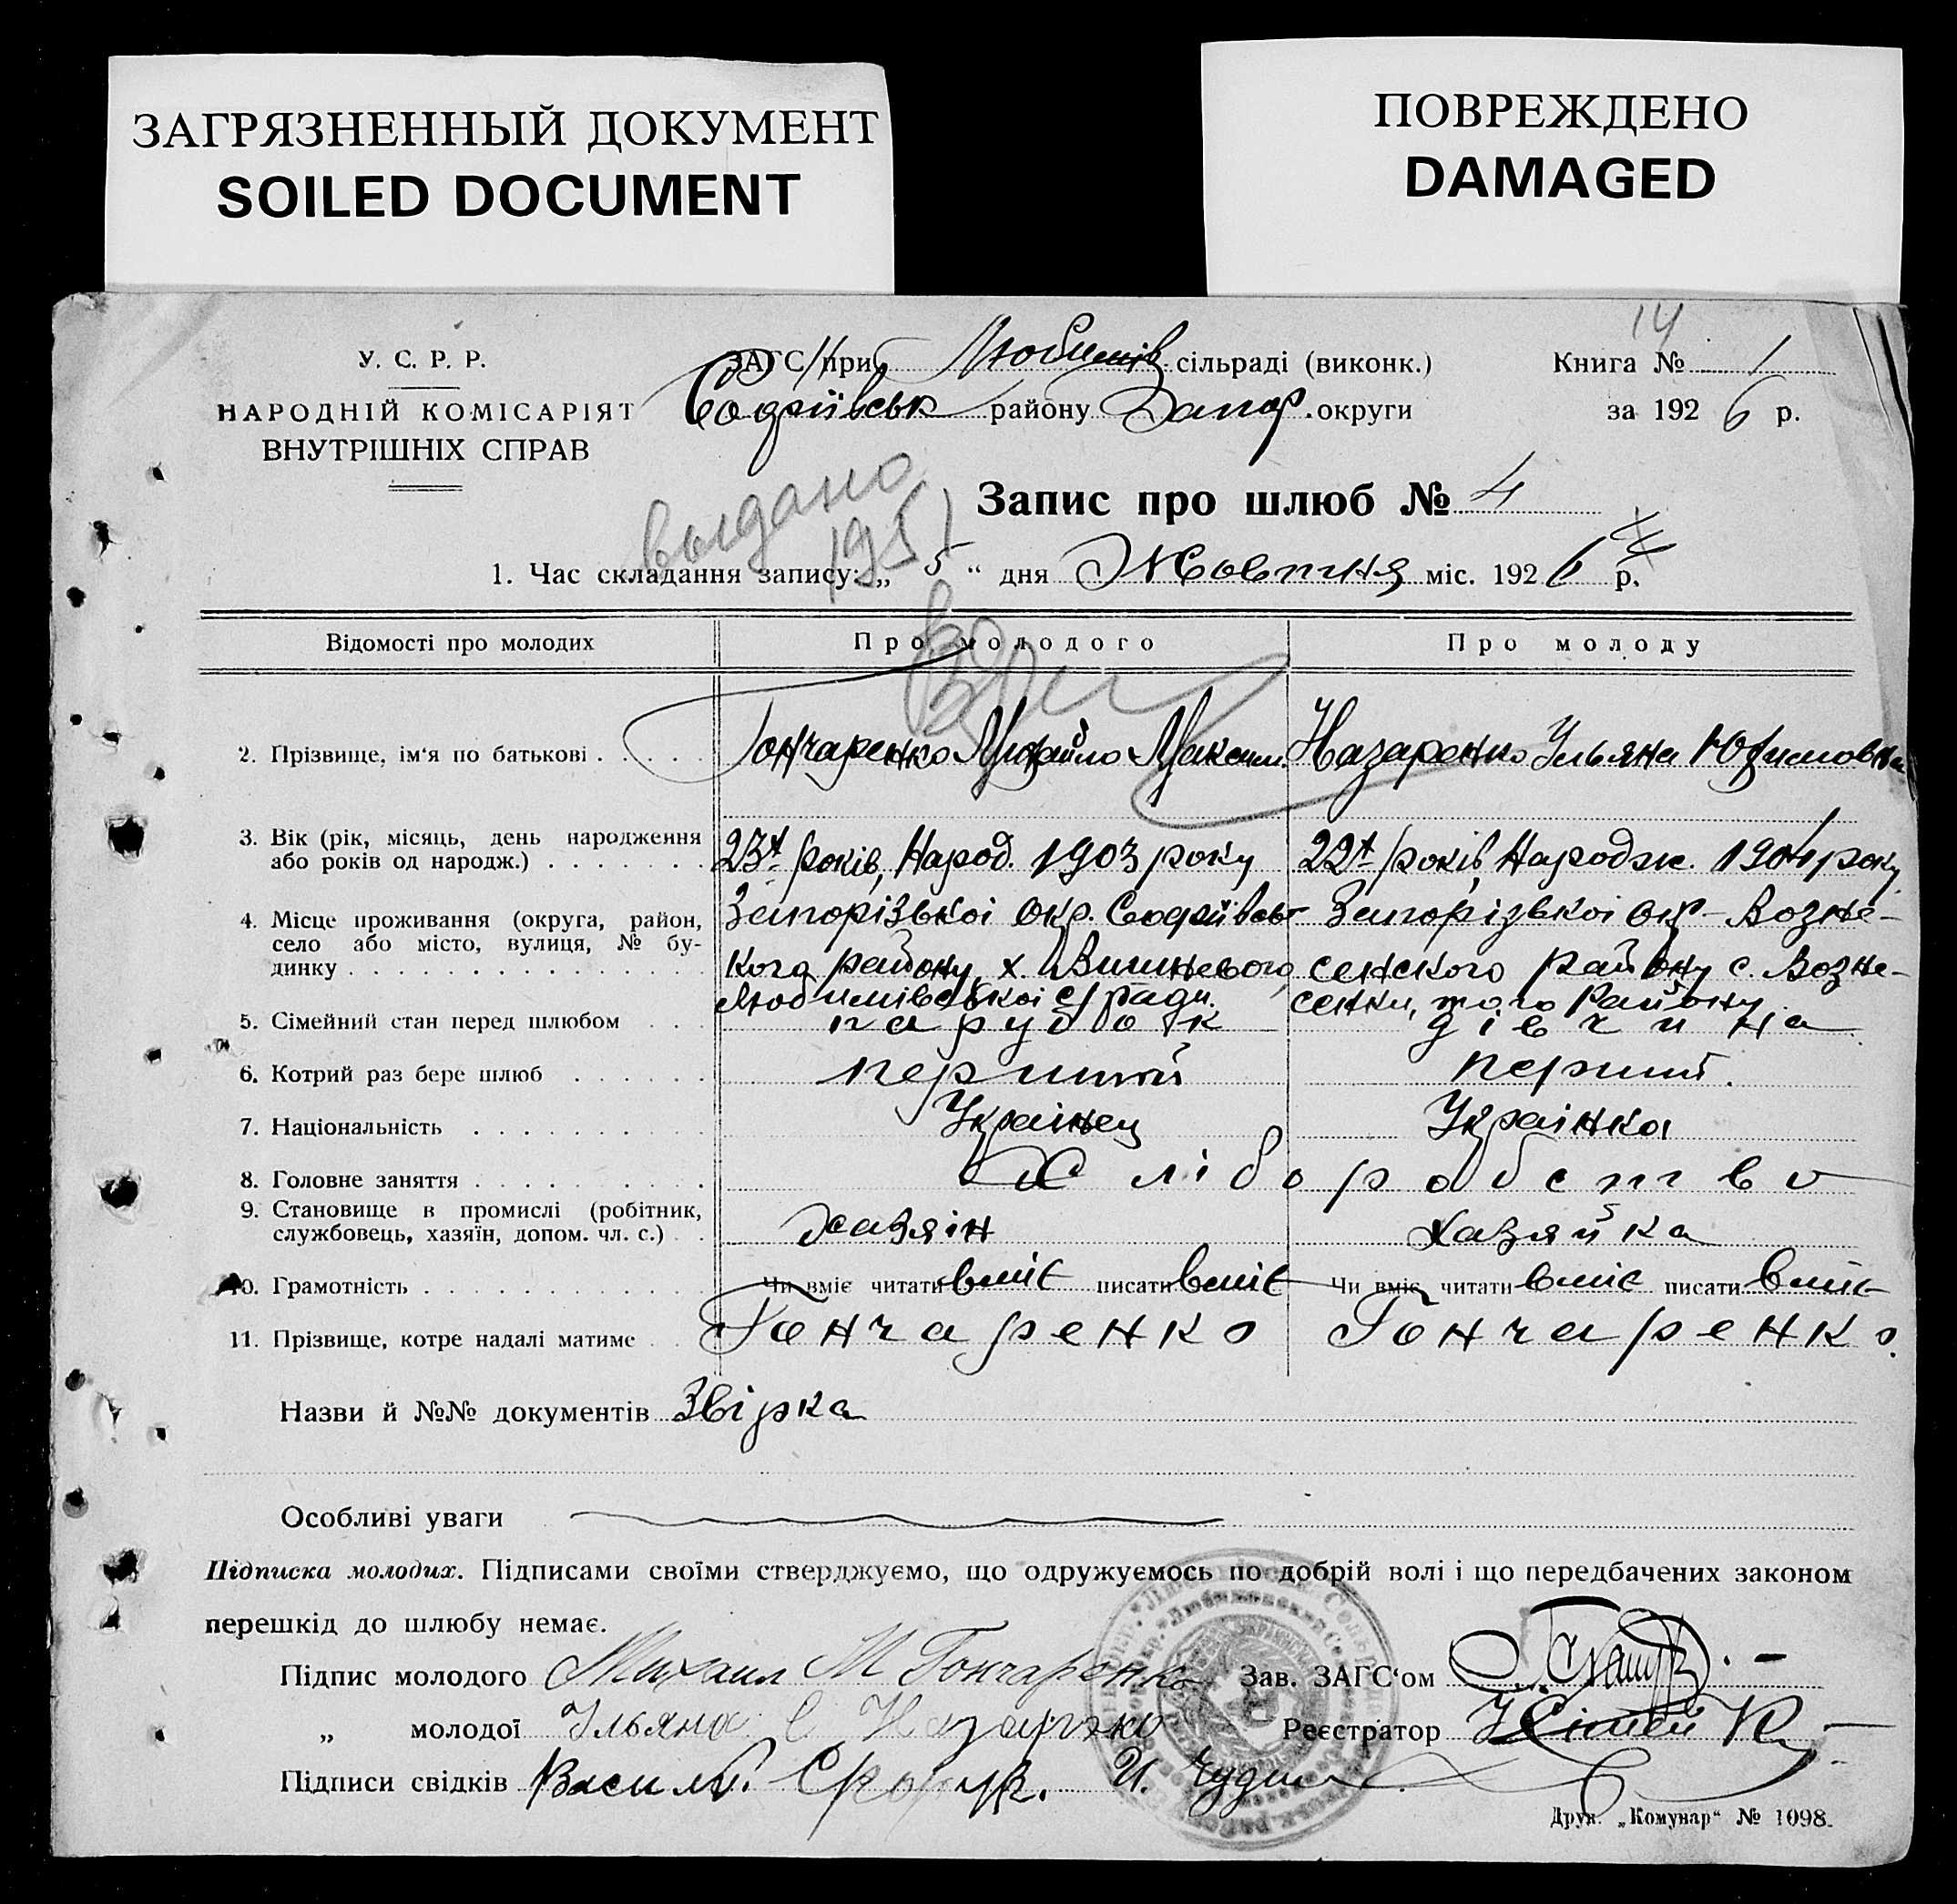 ЗАГРЯЗНЕННЫЙ ДОКУМЕНТ
SOILED DOCUMENT
ПОВРЕЖДЕНО
DAMAGED
14
У. С. Р. Р.
НАРОДНІЙ КОМІСАРІЯТ
ВНУТРІШНІХ СПРАВ
ЗАГС при Любимів. сільраді (виконк.)
Софіївськ району Запор. округи
Книга № 1
за 1926 р.
выдано
1951
Запис про шлюб № 4
1. Час складання запису: „ 5 “ дня Жовтня міс. 1926 р.
Відомості про молодих Про молодого Про молоду
2. Прізвище, ім'я по батькові . . . . . Гончаренко Михайло Максим. Назаренко Ульяна Юхимовна
3. Вік (рік, місяць, день народження
або років од народж.) . . . . . . . 23х років, Народ. 1903 року 22х років, Народж. 1904 року
4. Місце проживання (округа, район,
село або місто, вулиця, № бу-
динку . . . . . . . . . . . . . . .
Запорізькоі Окр. Софіївсь- Запорізькоі окр- Возне-
кого району, х. Вишньового, сенского району с. Возне-
Любимівської с/ради. сенки, того Району
5. Сімейний стан перед шлюбом . . . парубок дівчина
6. Котрий раз бере шлюб . . . . . . перший перший.
7. Національність . . . . . . . . . . Українец Українка
8. Головне заняття . . . . . . . . . . Хліборобство
9. Становище в промислі (робітник,
службовець, хазяїн, допом. чл. с.) . . хазяін хазяйка
10. Грамотність . . . . . . . . . . . . Чи вміє читати вміє писати вміє Чи вміє читати вміє писати вміє
11. Прізвище, котре надалі матиме . . Гончаренко Гончаренко.
Назви й №№ документів Звірка
Особливі уваги
Підписка молодих. Підписами своїми стверджуємо, що одружуємось по добрій волі і що передбачених законом
перешкід до шлюбу немає.
Підпис молодого Михаил М Гончаренко Зав. ЗАГС'ом
„ молодої Ульяна Є Назаренко Реєстратор
Підписи свідків Василь И.
Друк. „Комунар“ № 1098.